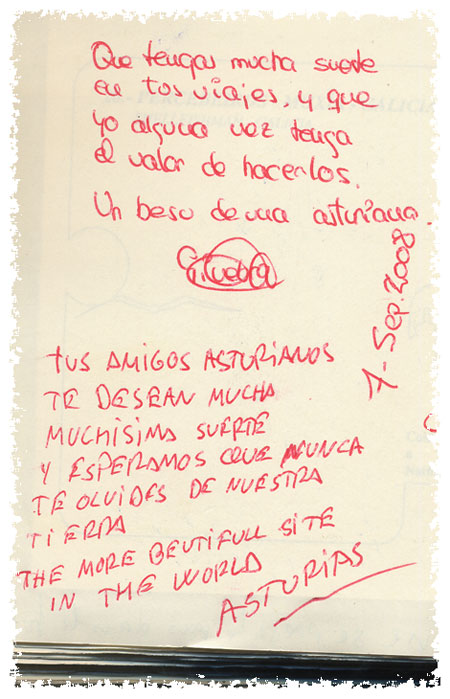 Que tengas mucha suerte
en tus viajes, y que
yo alguna vez tenga
el valor de hacerlos.
Un beso de una asturiana.
7-Sep.2008
TUS AMIGOS ASTURIANOS
TE DESEAN MUCHA
MUCHÍSIMA SUERTE
Y ESPERAMOS QUE NUNCA
TE OLVIDES DE NUESTRA
TIERRA
THE MORE BEUTIFULL SITE
IN THE WORLD
ASTURIAS